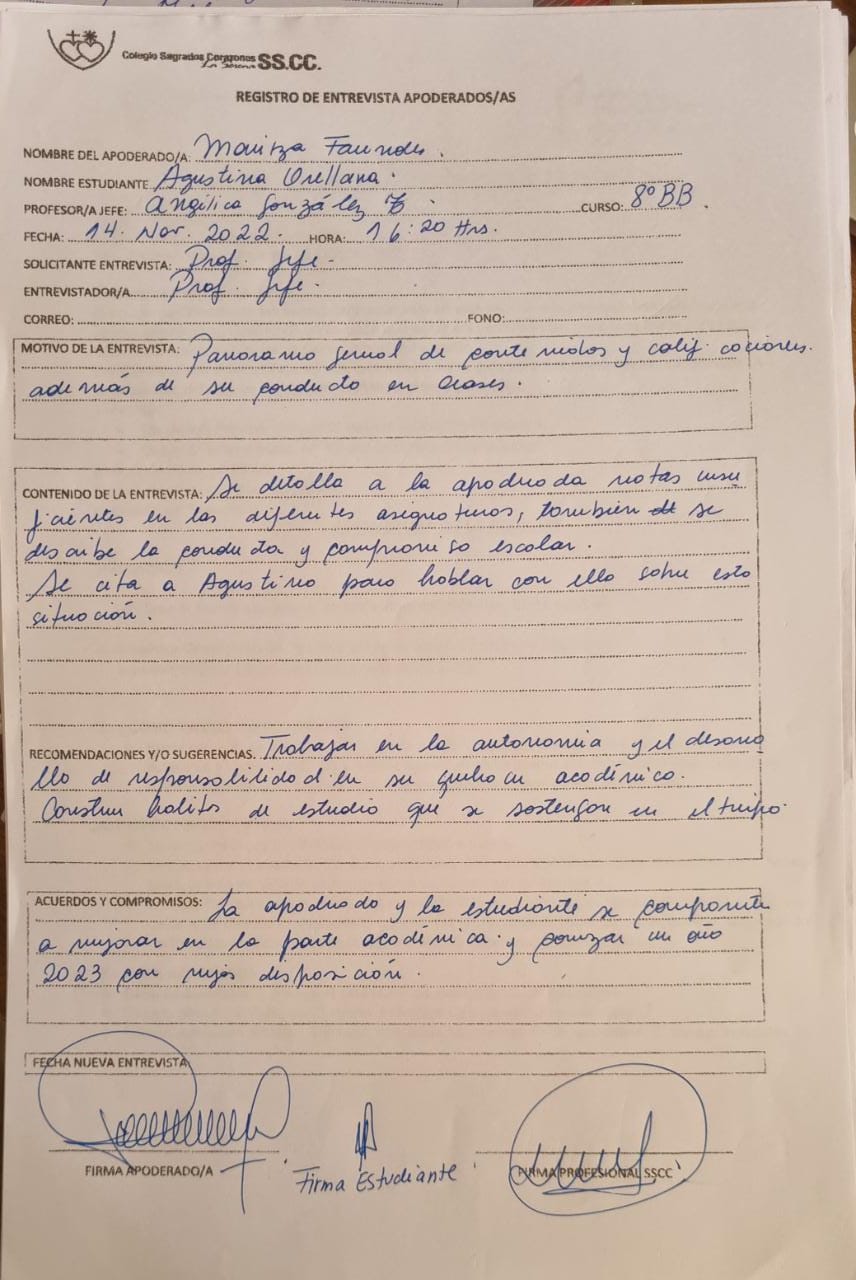 Colegio Sagrados Corazones SS.CC.
La Serena
REGISTRO DE ENTREVISTA APODERADOS/AS
NOMBRE DEL APODERADO/A: Maritza Faundes.
NOMBRE ESTUDIANTE Agustina Orellana.
PROFESOR/A JEFE: Angélica González Z. CURSO: 8º BB.
FECHA: 14. Nov. 2022. HORA: 16:20 Hrs.
SOLICITANTE ENTREVISTA: Prof. Jefe.
ENTREVISTADOR/A Prof. Jefe.
CORREO: FONO:
MOTIVO DE LA ENTREVISTA: Panorama general de contenidos y calificaciones.
además de su conducta en clases.
CONTENIDO DE LA ENTREVISTA: Se detalla a la apoderada notas insu
ficientes en las diferentes asignaturas, también se
describe la conducta y compromiso escolar.
Se cita a Agustina para hablar con ella sobre esta
situación.
RECOMENDACIONES Y/O SUGERENCIAS. Trabajar en la autonomía y el desarro
llo de responsabilidad en su quehacer académico.
Construir hábitos de estudio que se sostengan en el tiempo.
ACUERDOS Y COMPROMISOS: La apoderada y la estudiante se compromete
a mejorar en la parte académica y comenzar un año
2023 con mejor disposición.
FECHA NUEVA ENTREVISTA
FIRMA APODERADO/A Firma Estudiante FIRMA PROFESIONAL SSCC